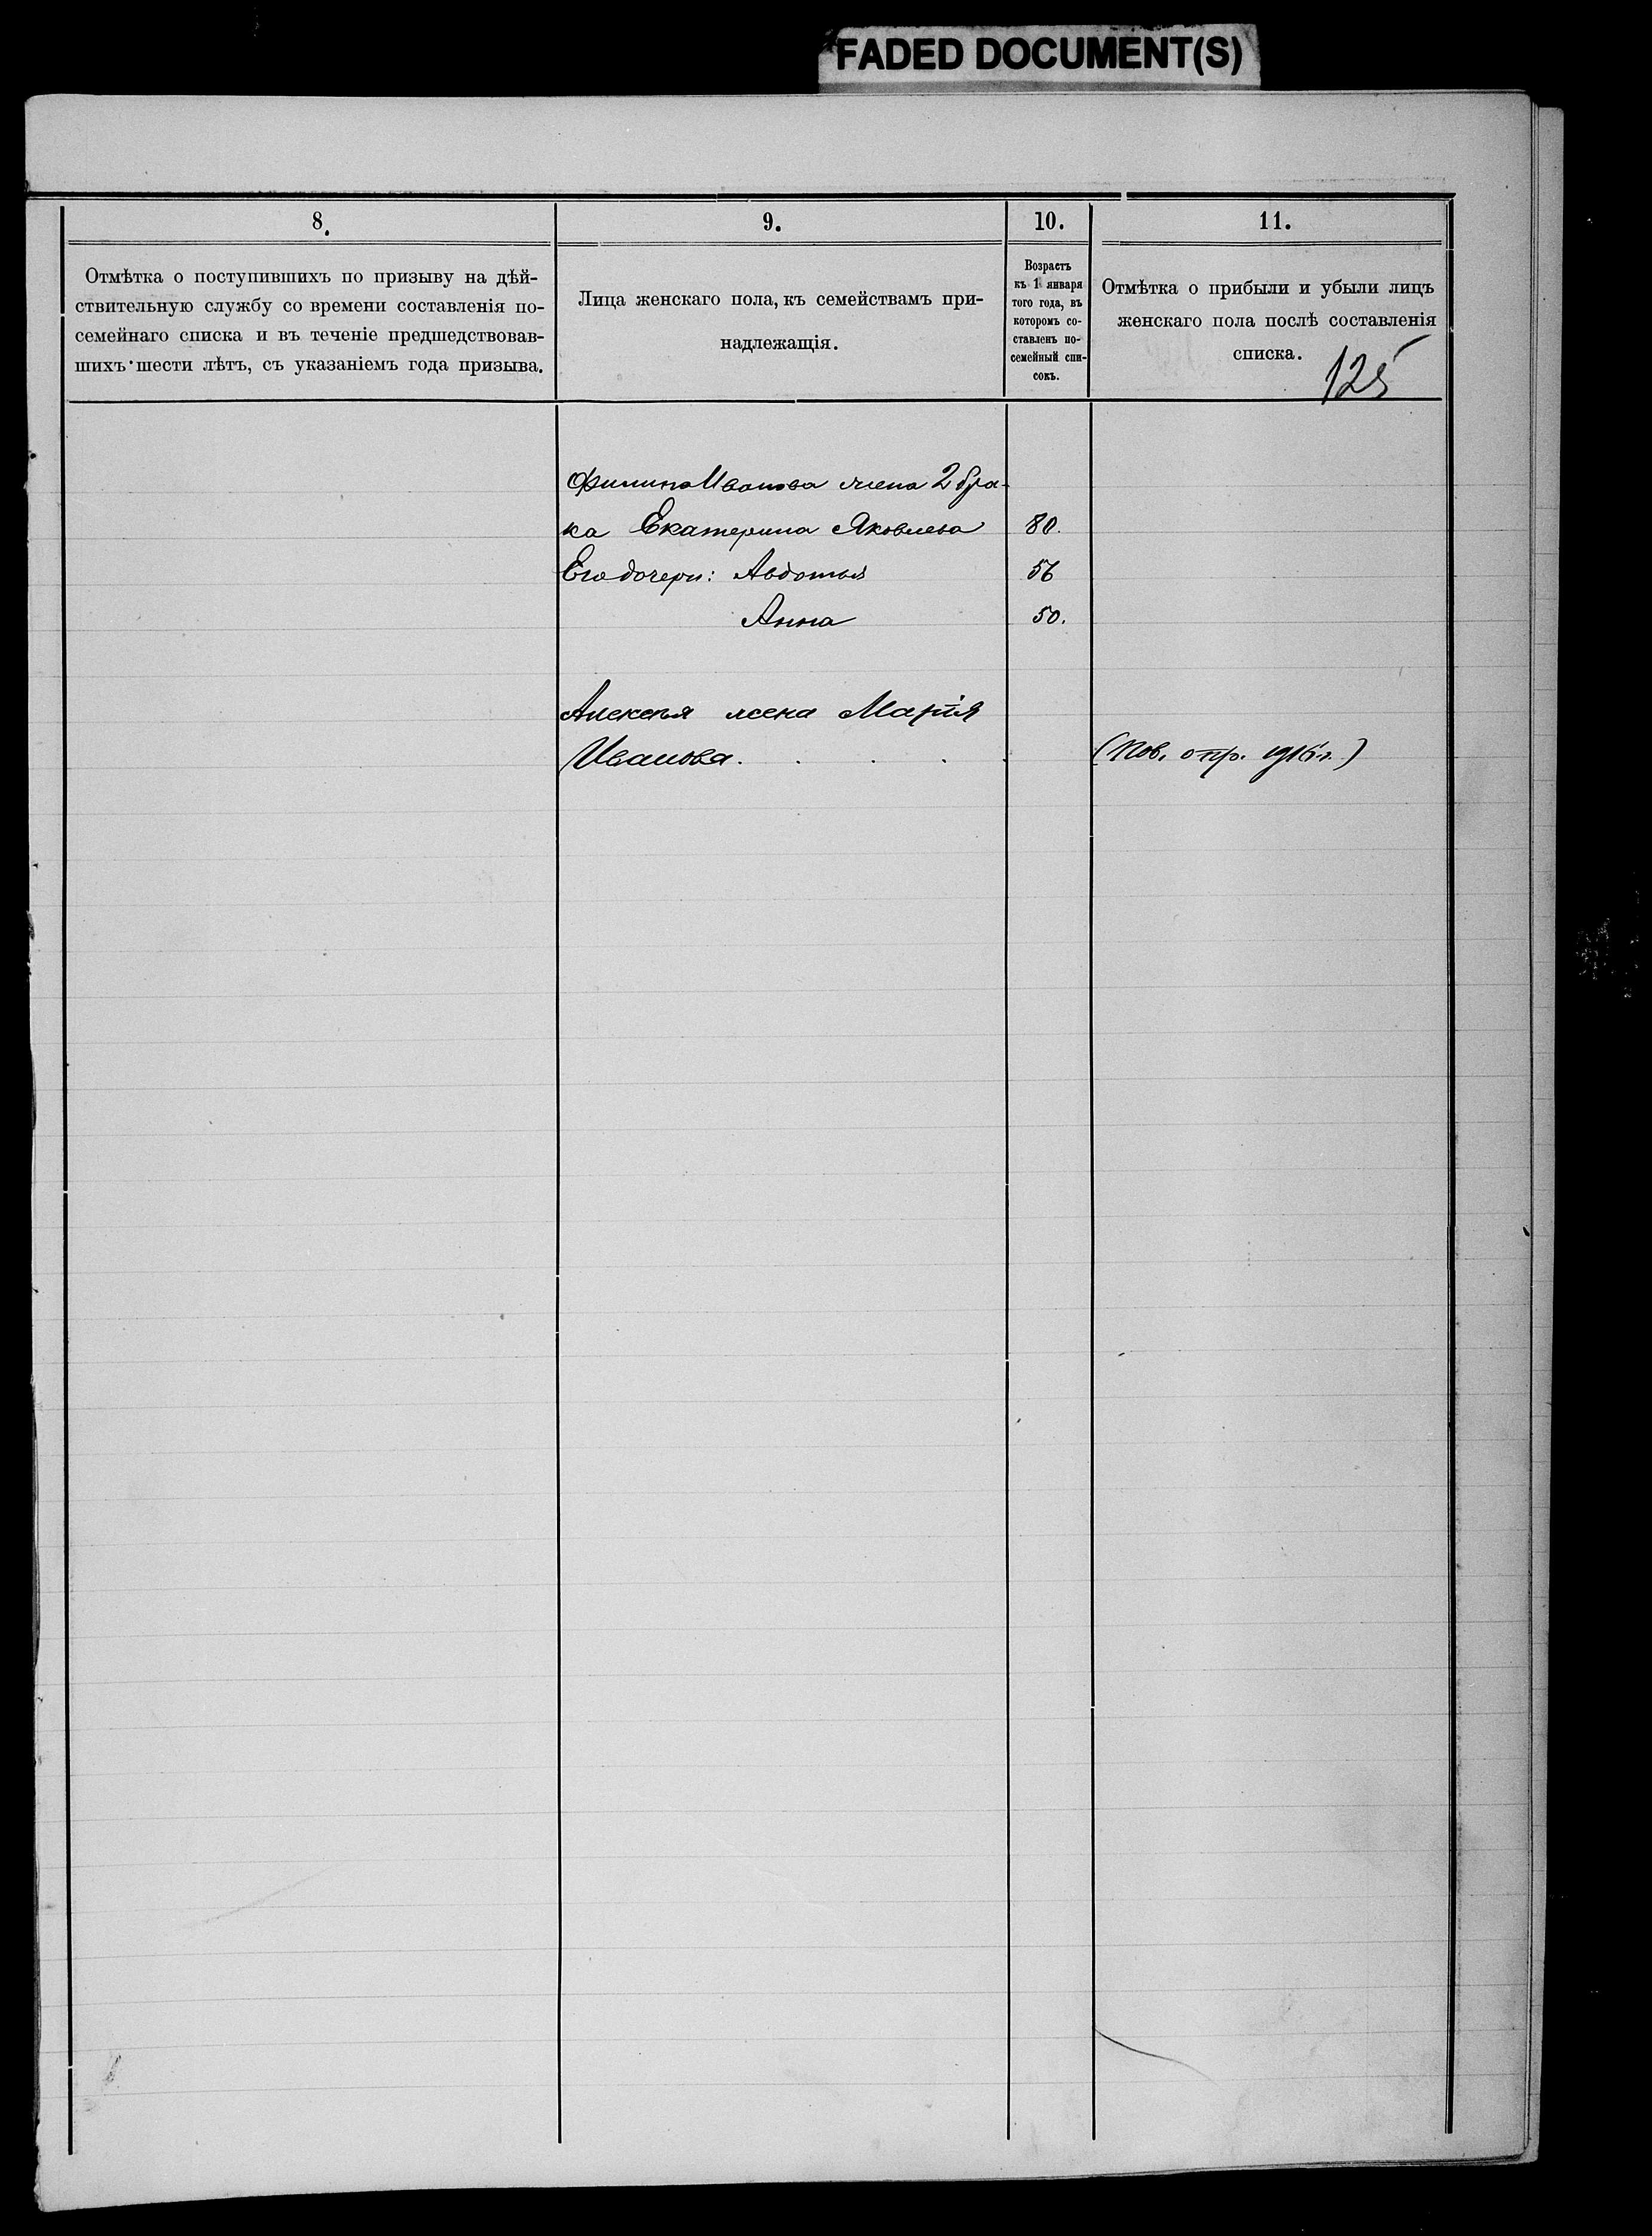 FADED DOCUMENT(S)
8.
Отмѣтка о поступившихъ по призыву на дѣй-
ствительную службу со времени составленія по-
семейнаго списка и въ теченіе предшедствовав-
шихъ шести лѣтъ, съ указаніемъ года призыва.
9.
Лица женскаго пола, къ семействамъ при-
надлежащія.
10.
Возрастъ
къ 1 января
того года, въ
которомъ со-
ставленъ по-
семейный спи-
сокъ.
11.
Отмѣтка о прибыли и убыли лицъ
женскаго пола послѣ составленія
списка.
125
Филипа Иванова жена 2 бра-
ка Екатерина Яковлева 80.
Его дочери: Авдотья 56
Анна 50.
Алексѣя жена Марія
Иванова. . . . . (Пов. отр. 1916 г.)